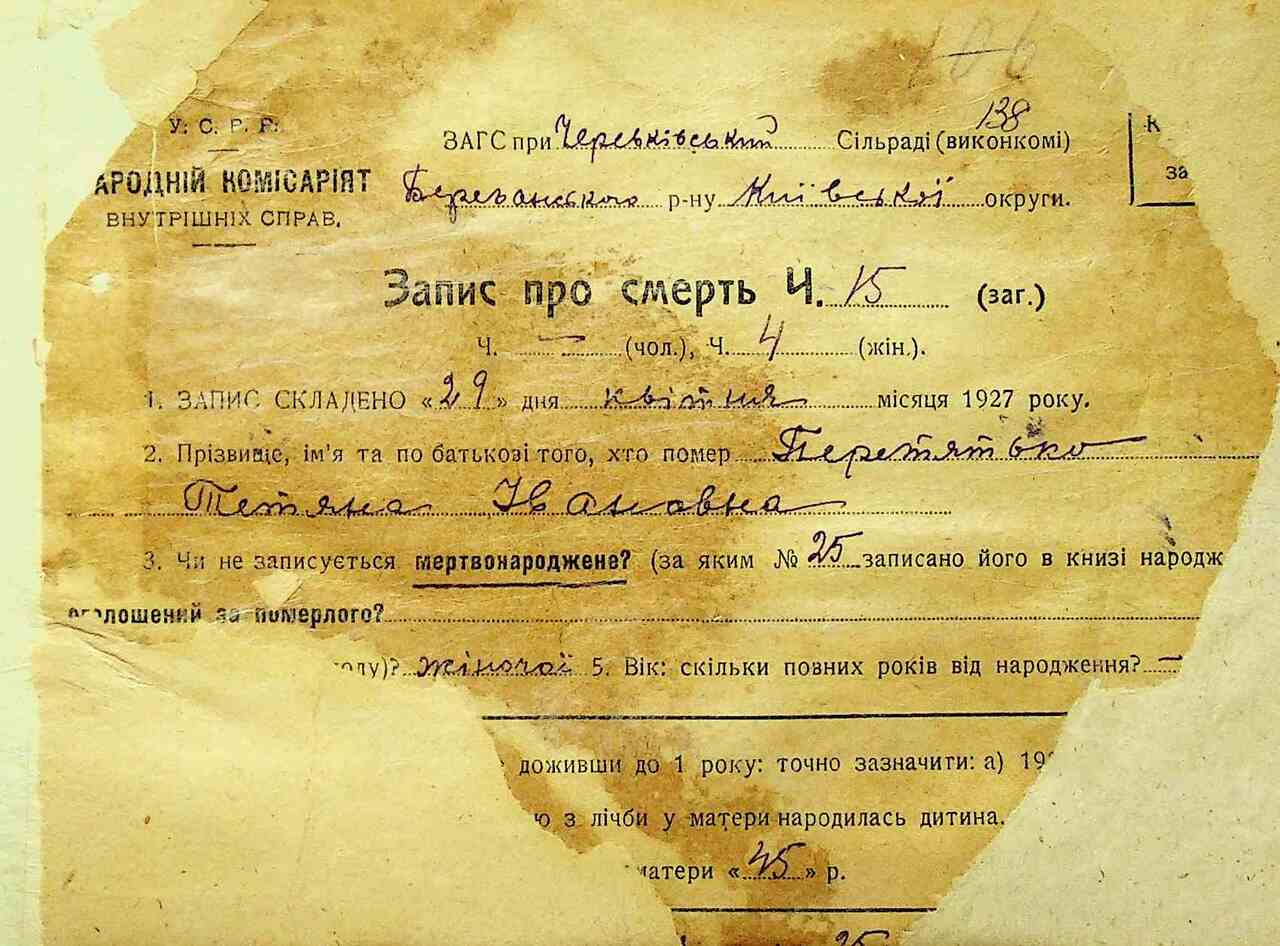 106
138
У. С. Р. Р.
АРОДНІЙ КОМІСАРІЯТ
ВНУТРІШНІХ СПРАВ.
К
за
ЗАГС при Сільраді (виконкомі)
Березанського р-ну Київської округи.
Запис про смерть Ч. 15 (заг.)
Ч. — (чол.), Ч. 4 (жін.).
1. ЗАПИС СКЛАДЕНО «29» дня квітня місяця 1927 року.
2. Прізвище, ім'я та по батькові того, хто помер Перетятько
Тетяна Івановна
3. Чи не записується мертвонароджене? (за яким № 25 записано його в книзі народж
оголошений за померлого?
ду)? жіночої 5. Вік: скільки повних років від народження? —
доживши до 1 року: точно зазначити: а) 19
ю з лічби у матери народилась дитина.
матери «45» р.
25